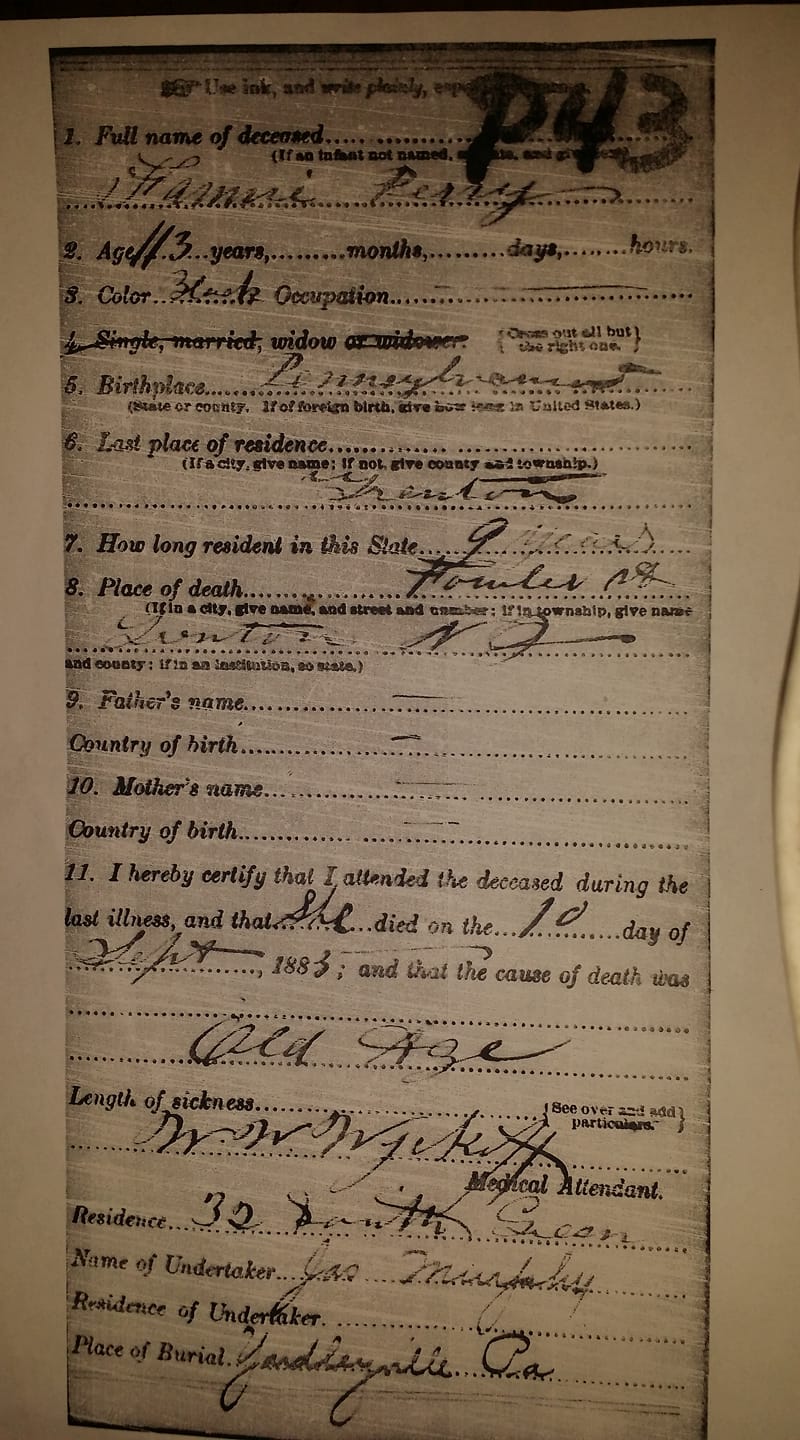 Use ink, and write plainly,
P43
1. Full name of deceased
(If an infant not named,
Perry
2. Age 113 years, months, days, hours.
3. Color Occupation
4. Single, married, widow or widower. {Cross out all but the right one.}
5. Birthplace Pennsylvania
(State or county. If of foreign birth, give how long in United States.)
6. Last place of residence
(If a city, give name; if not, give county and township.)
Trenton
7. How long resident in this State 9 years
8. Place of death Fowler St
(If in a city, give name, and street and number; if in township, give name
Trenton N J
and county; if in an institution, so state.)
9. Father's name
Country of birth
10. Mother's name
Country of birth
11. I hereby certify that I attended the deceased during the
last illness, and that She died on the 10 day of
Sept, 1883; and that the cause of death was
Old Age
Length of sickness {See over and add particulars.}
W W
Medical Attendant.
Residence 32 South Green
Name of Undertaker Jas Murphy
Residence of Undertaker.
Place of Burial. Yardleyville Pa